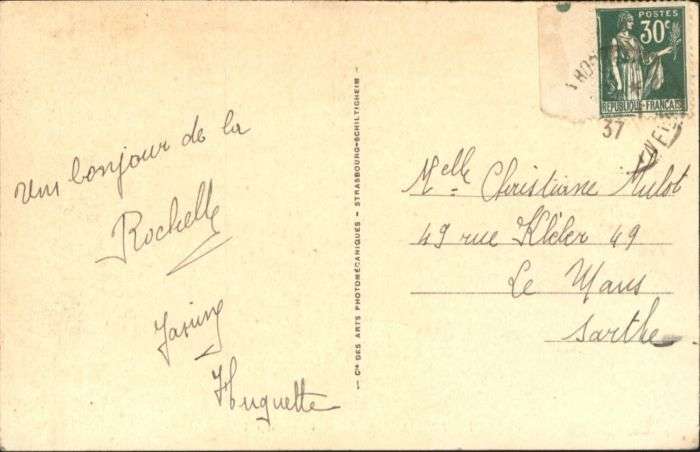 un bonjour de la
Rochelle
Huguette
— Cie DES ARTS PHOTOMÉCANIQUES - STRASBOURG-SCHILTIGHEIM —
POSTES
30c
RÉPUBLIQUE FRANÇAISE
37
Melle Christiane Mulot
49 rue Kléber 49
Le Mans
Sarthe